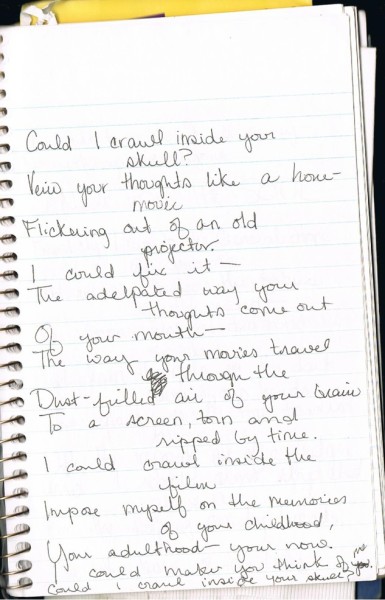 Could I crawl inside your
skull?
Veiw your thoughts like a home-
movie
Flickering out of an old
projector.
I could fix it—
The adelpated way your
thoughts come out
Of your mouth—
The way your movies travel
through the
Dust-frilled air of your brain
To a screen, torn and
ripped by time.
I could crawl inside the
film
Impose myself on the memories
of your childhood,
Your adulthood—your now.
could make you think of me.
Could I crawl inside your skull?